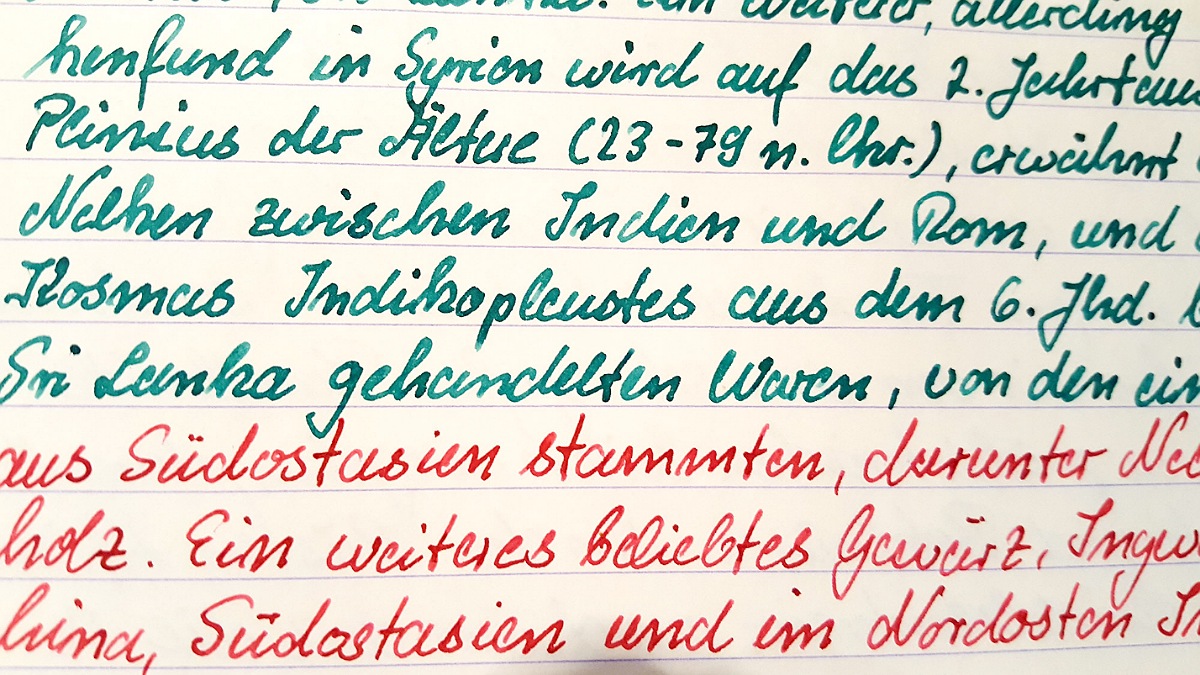 weiterer, allerding
henfund in Syrien wird auf das 2. Jahrtau
Plinius der Ältere (23-79 n. Chr.), erwähnt
Nelken zwischen Indien und Rom, und
Kosmas Indikopleustes aus dem 6. Jhd.
Sri Lanka gehandelten Waren, von den ein
aus Südostasien stammten, darunter Nel
holz. Ein weiteres beliebtes Gewürz, Ingw
hina, Südostasien und im Nordosten In